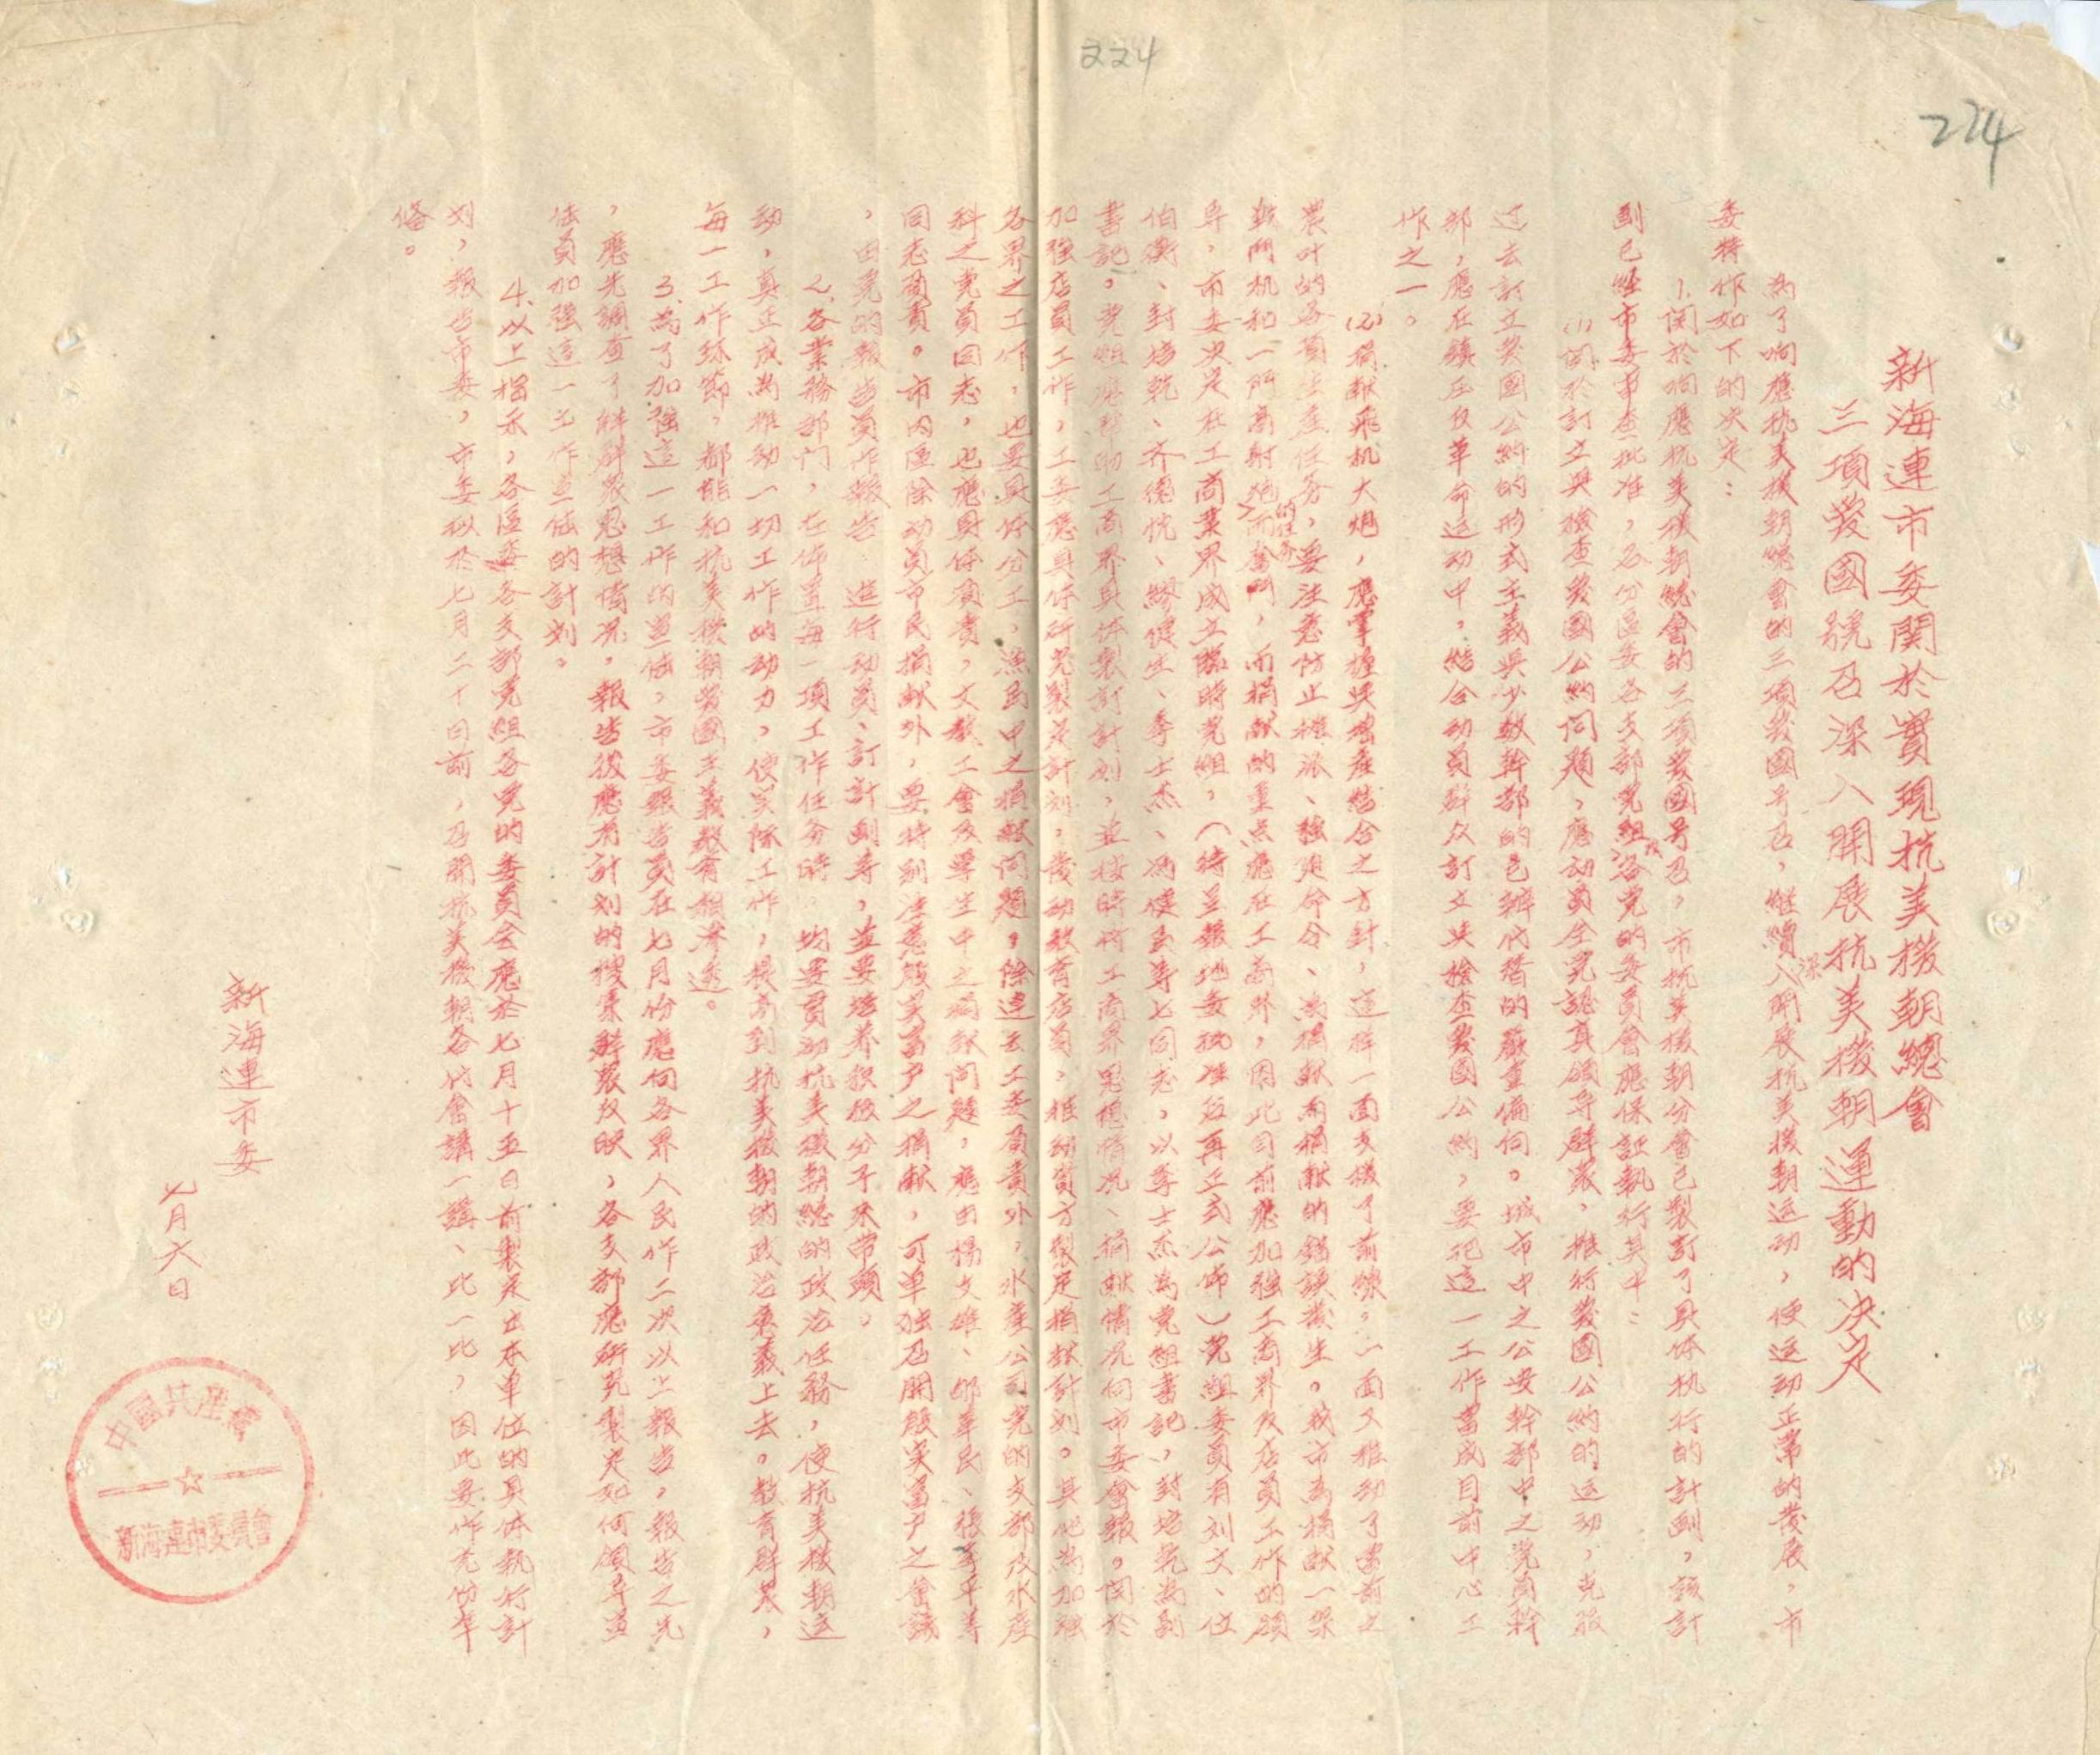 224
224
新海連市委関於實現抗美援朝總會
三項爱國號召深入開展抗美援朝運動的决定
為了响應抗美援朝總會的三項爱國号召，繼續深入開展抗美援朝运动，使运动正常的發展，市
委特作如下的决定：
1、関於响應抗美援朝總會的三項爱國号召，市抗美援朝分會已製訂了具体执行的計劃，該計
劃已經市委审查批准，各分區委各支部党組及各党的委員會應保証執行其中：
(1)関於訂立與檢查爱國公約问題，應动員全党認真領导群众，推行爱國公約的运动，克服
过去訂立爱國公約的形式主義與少数幹部的包辦代替的嚴重偏向。城市中之公安幹部中之党員幹
部，應在鎮压反革命运动中，結合动員群众訂立與檢查爱國公約，要把這一工作當成目前中心工
作之一。
(2)捐献飛机大炮，應掌握與增產結合之方針，這样一面支援了前線，一面又推动了當前之
農叶的各項生產任务，要注意防止摊派、強迫命令、為捐献而捐献的錯誤發生。我市為捐献一架
战鬥机和一門高射炮的任务而奮鬥，而捐献的重点應在工商界，因此目前應加強工商界及店員工作的領
导，市委决定在工商業界成立臨時党組，（待呈報地委批准后再正式公佈）党組委員有刘文、位
伯衡、封培乾、齐德忱、繆健生、季士杰、為使
書記。党組應帮助工商界具体製訂計划，並按時将工商界思想情况、捐献情况向市委會報。関於
加強店員工作，工委應具体研究製定計划，發动教育店員，推动資方製定捐献計划。其他為加強
各界之工作，也要具体分工，漁民中之捐献问題，除連云工委負責外，水產公司党的支部及水產
科之党員同志，也應具体負責，文教工會及學生中之捐献问題，應由楊文雄、
同志負責。市内區除动員市民捐献外，要特別注意殷實富户之捐献，可单独召開殷实富户之會議
，由党的報告員作報告，進行动員、訂計劃等，並要培养积极分子來带頭。
2、各業務部門，在佈置每一項工作任务時，均要貫彻抗美援朝總的政治任務，使抗美援朝运
动，真正成為推动一切工作的动力，使实际工作，提高到抗美援朝的政治意義上去。教育群众，
每一工作环節，都能和抗美援朝爱國主義教育相溝通。
3、為了加強這一工作的宣传，市委報告員在七月份應向各界人民作二次以上報告，報告之先
，應先調查了解群衆思想情况，報告後應有計划的搜集群衆反映，各支部應研究製定如何領导宣
传員加強這一工作宣传的計划。
4、以上指示，各區委各支部党組各党的委員会應於七月十五日前製定出本单位的具体執行計
划，報告市委，市委拟於七月二十日前，召開抗美援朝各代會講一講、比一比，因此要作充份準
俻。
新海連市委
七月六日
中國共產党
新海連市委員會